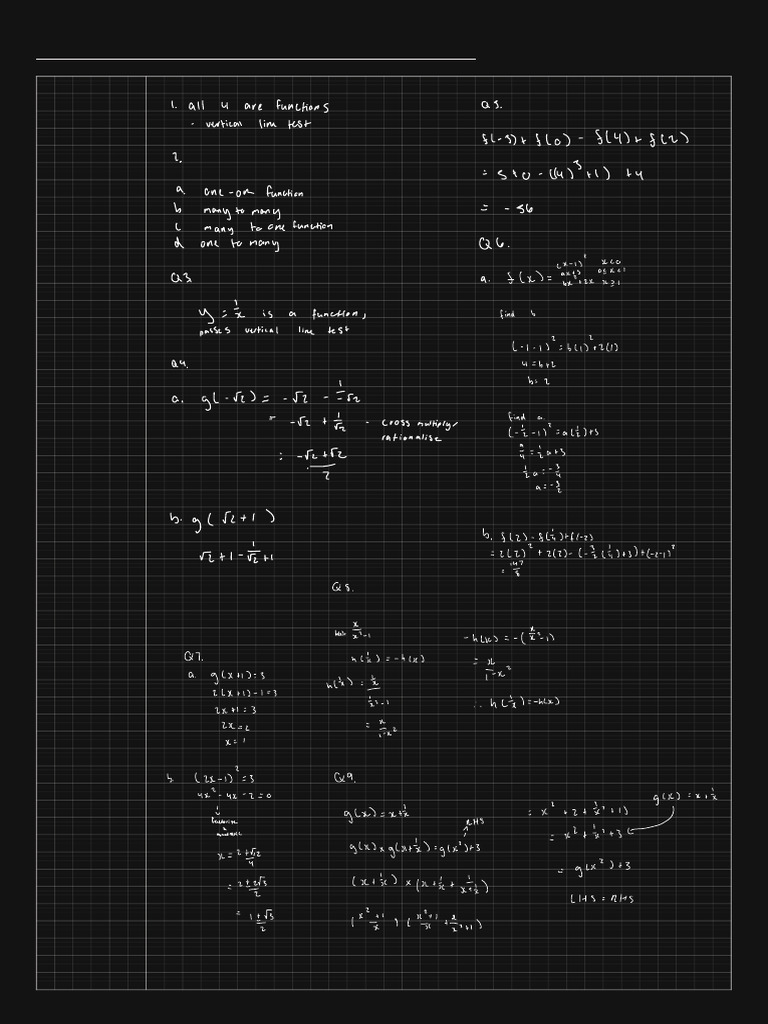 1. all 4 are functions
- vertical line test
2.
a. one-one function
b many to many
c many to one function
d one to many
Q3
y = 1/x is a function,
passes vertical line test
Q4.
a. g(-√2) = -√2 - 1/-√2
= -√2 + 1/√2 - cross multiply/
rationalise
= -√2+√2/2
b. g( √2+1 )
√2+1 - 1/√2+1
Q5.
f(-5) + f(0) - f(4) + f(2)
= 5+0 - ((4)³+1) +4
= -56
Q6.
a. f(x) = (x-1)² x<0
ax+3 0≤x<1
bx²+2x x≥1
find b
(-1-1)² = b(1)²+2(1)
4 = b+2
b = 2
find a
(-1/2-1)² = a(1/2)+3
9/4 = 1/2a+3
1/2a = -3/4
a = -3/2
b. f(2) - f(1/4)+f(-2)
= 2(2)²+2(2) - (-3/2(1/4)+3)+(-2-1)²
= 147/8
Q7.
a. g(x+1)=3
2(x+1)-1=3
2x+1=3
2x=2
x=1
b. (2x-1)²=3
4x²-4x-2=0
x = 2±√12/4
= 2±2√3/2
= 1±√3/2
Q8.
x/x²-1
h(1/x) = -h(x)
h(1/x) = 1/x / 1/x²-1
= x/1-x²
-h(x) = -(x/x²-1)
= x/1-x²
∴ h(1/x) = -h(x)
Q9.
g(x) = x+1/x
RHS
g(x) × g(x+1/x) = g(x²)+3
(x+1/x) × (x+1/x + 1/x+1/x)
(x²+1/x) (x²+1/x + x/x²+1)
= x²+2+1/x²+1)
g(x) = x+1/x
= x²+1/x²+3
= g(x²)+3
LHS = RHS